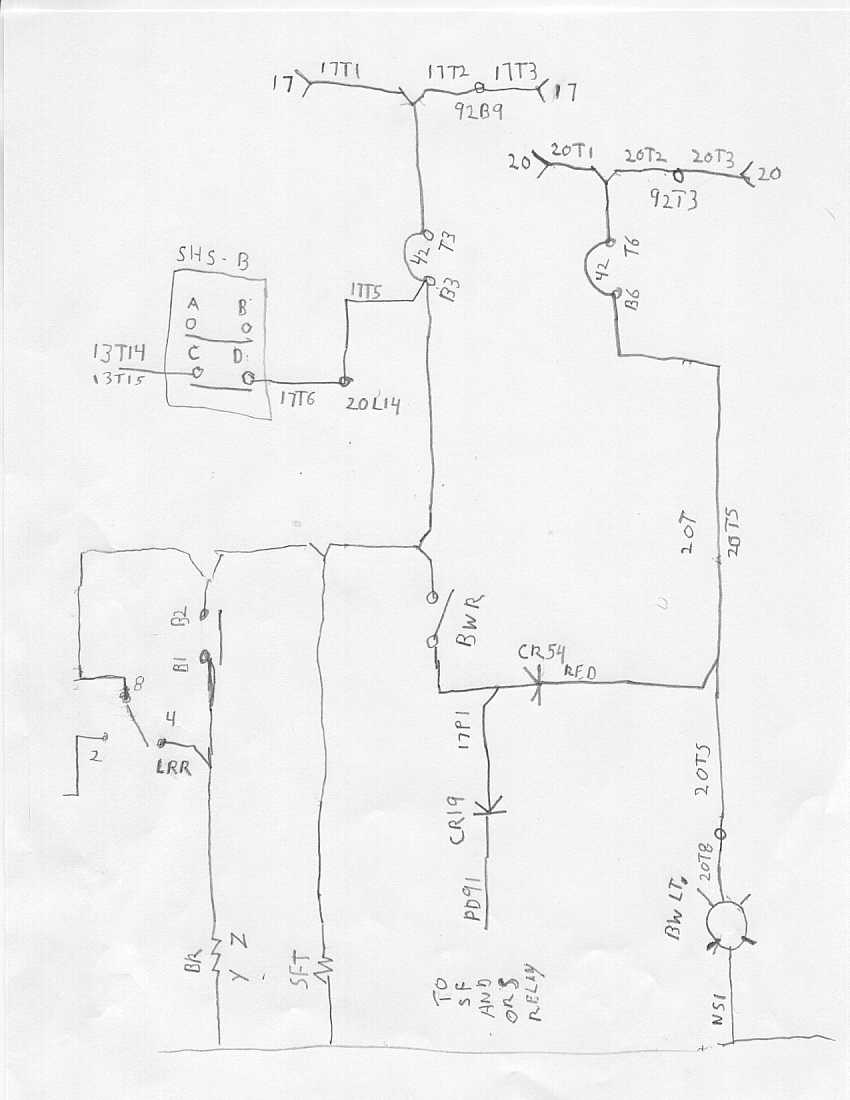 17
17T1
17T2
17T3
17
92B9
20
20T1
20T2
20T3
20
92T3
42
T3
B3
42
T6
B6
SHS-B
A
B
C
D
13T14
13T15
17T5
17T6
20L14
20T
20T5
B2
B1
BWR
CR54
RED
8
4
2
LRR
17P1
CR19
PD91
20T5
20T8
BW LT.
NS1
BR
Z
Y
SFT
TO
SF
AND
OR3
RELAY